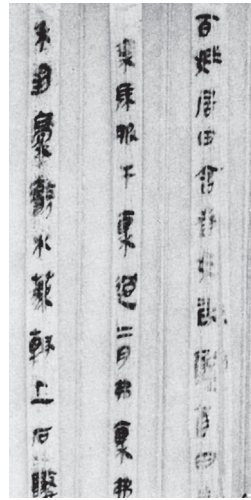 百姓居田舍者毋敢酤酉田
乘馬服牛稟過二月弗稟弗
禾芻稾徹木薦輒上石數